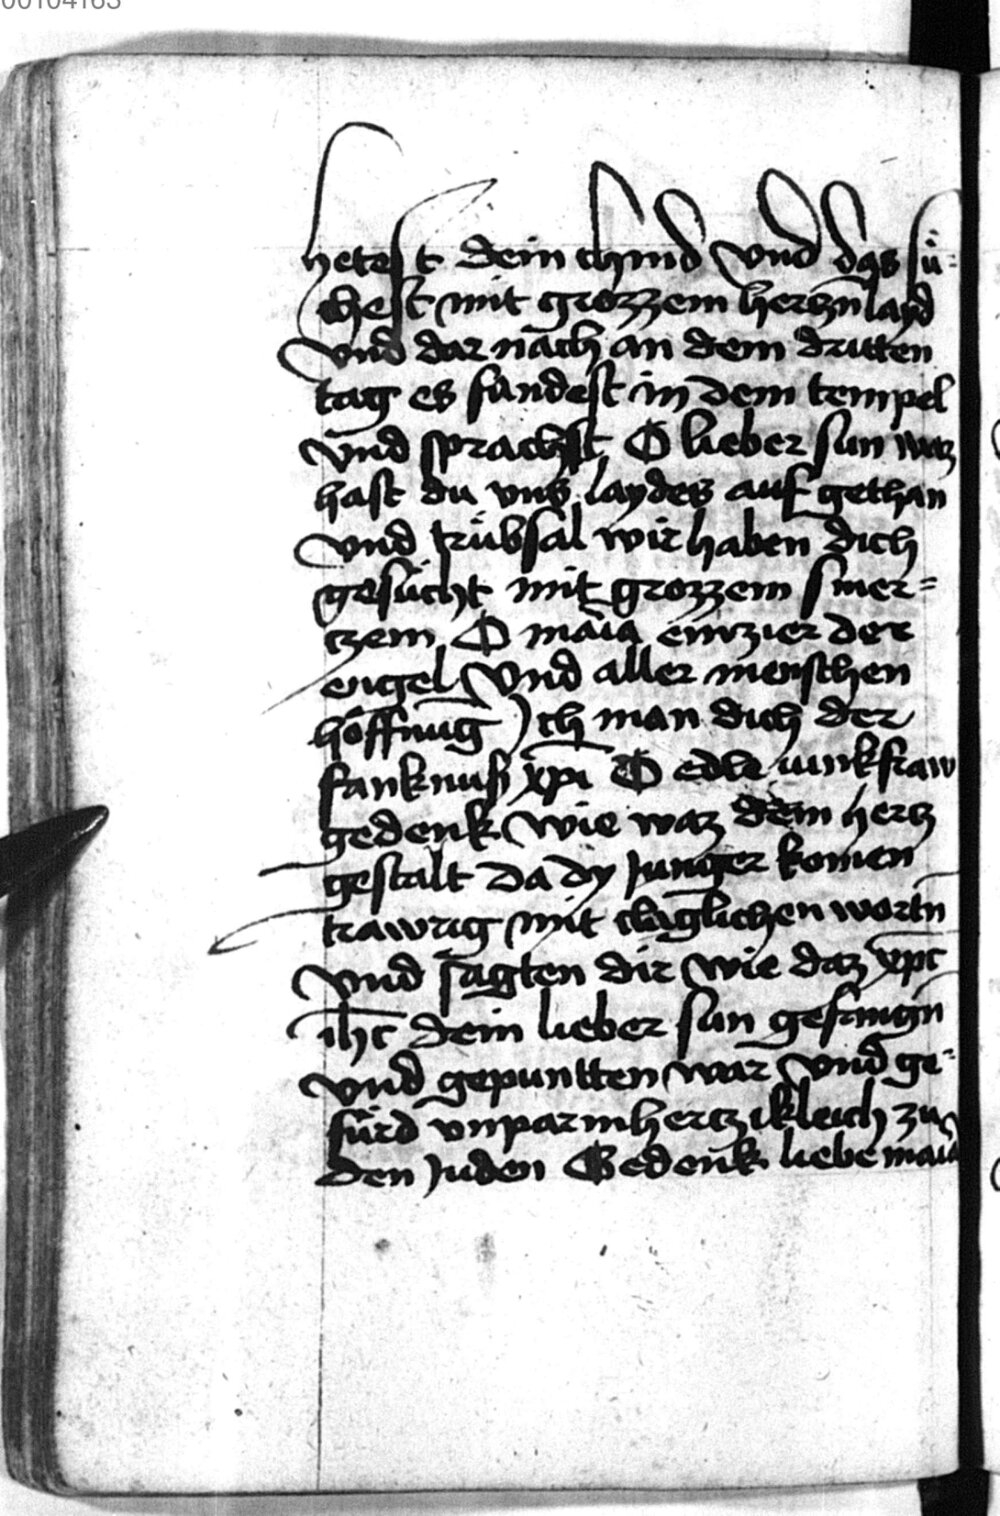 00104163
hetest dein chind vnd das sü-
chest mit grozzem hertzn layd
vnd dar nach an dem dritten
tag es fandest in dem tempel
vnd sprachst O lieber sun waz
hast du vns laydes auf gethan
vnd trübsal wir haben dich
gesücht mit grozzem smer=
tzem O maīa ein zier der
engel vnd aller menschen
hoffnūg Ich man dich der
fanknuß xpī O edle junkfraw
gedenk wie waz dein hertz
gestalt da dy Junger komen
trawrig mit claglichen wortn
vnd sagten dir wie daz xpc
ihc dein lieber sun gefangn
vnd gepuntten war vnd ge-
fürd vnparmhertzikleich zu
den Juden Gedenk liebe maīa